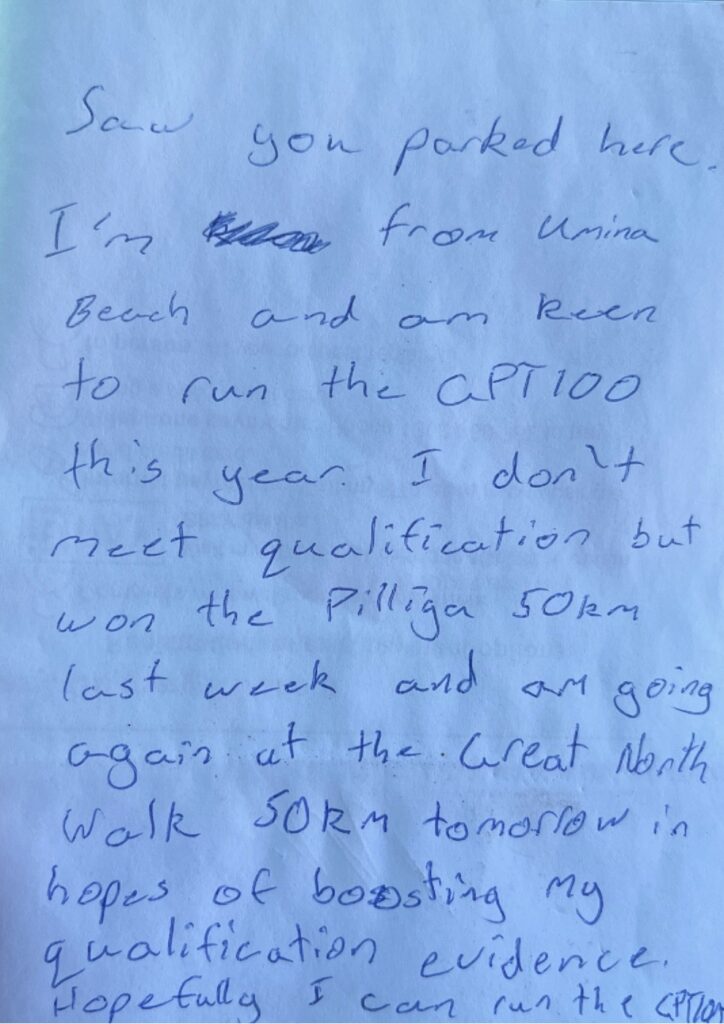 Saw you parked here.
I'm from Umina
Beach and am keen
to run the GPT100
this year. I don't
meet qualification but
won the Pilliga 50km
last week and am going
again at the Great North
Walk 50km tomorrow in
hopes of boosting my
qualification evidence.
Hopefully I can run the GPT100